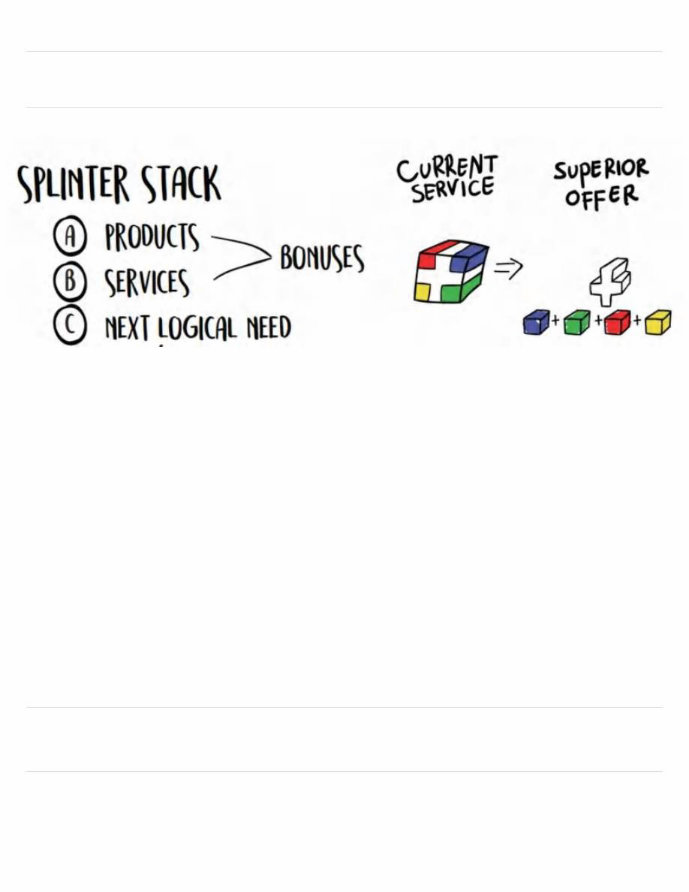 SPLINTER STACK
A PRODUCTS
B SERVICES
BONUSES
C NEXT LOGICAL NEED
CURRENT
SERVICE
SUPERIOR
OFFER
+ + +